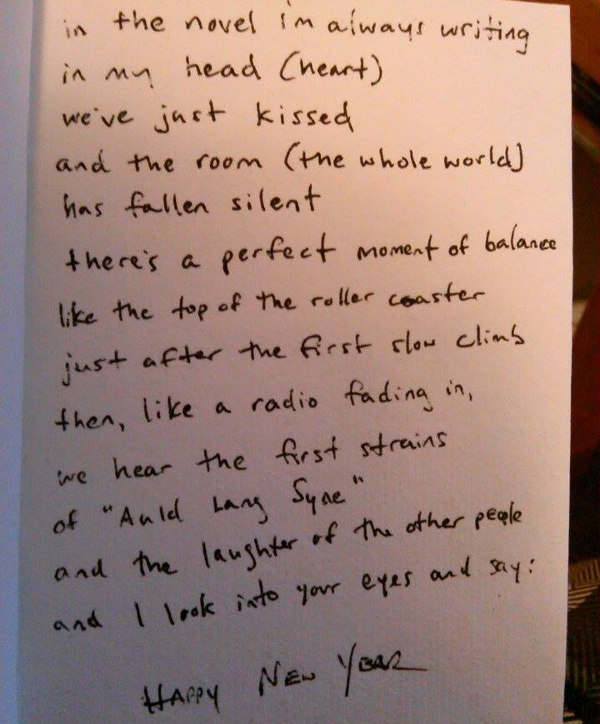 in the novel i'm always writing
in my head (heart)
we've just kissed
and the room (the whole world)
has fallen silent
there's a perfect moment of balance
like the top of the roller coaster
just after the first slow climb
then, like a radio fading in,
we hear the first strains
of "Auld Lang Syne"
and the laughter of the other people
and I look into your eyes and say:
HAPPY NEW YEAR